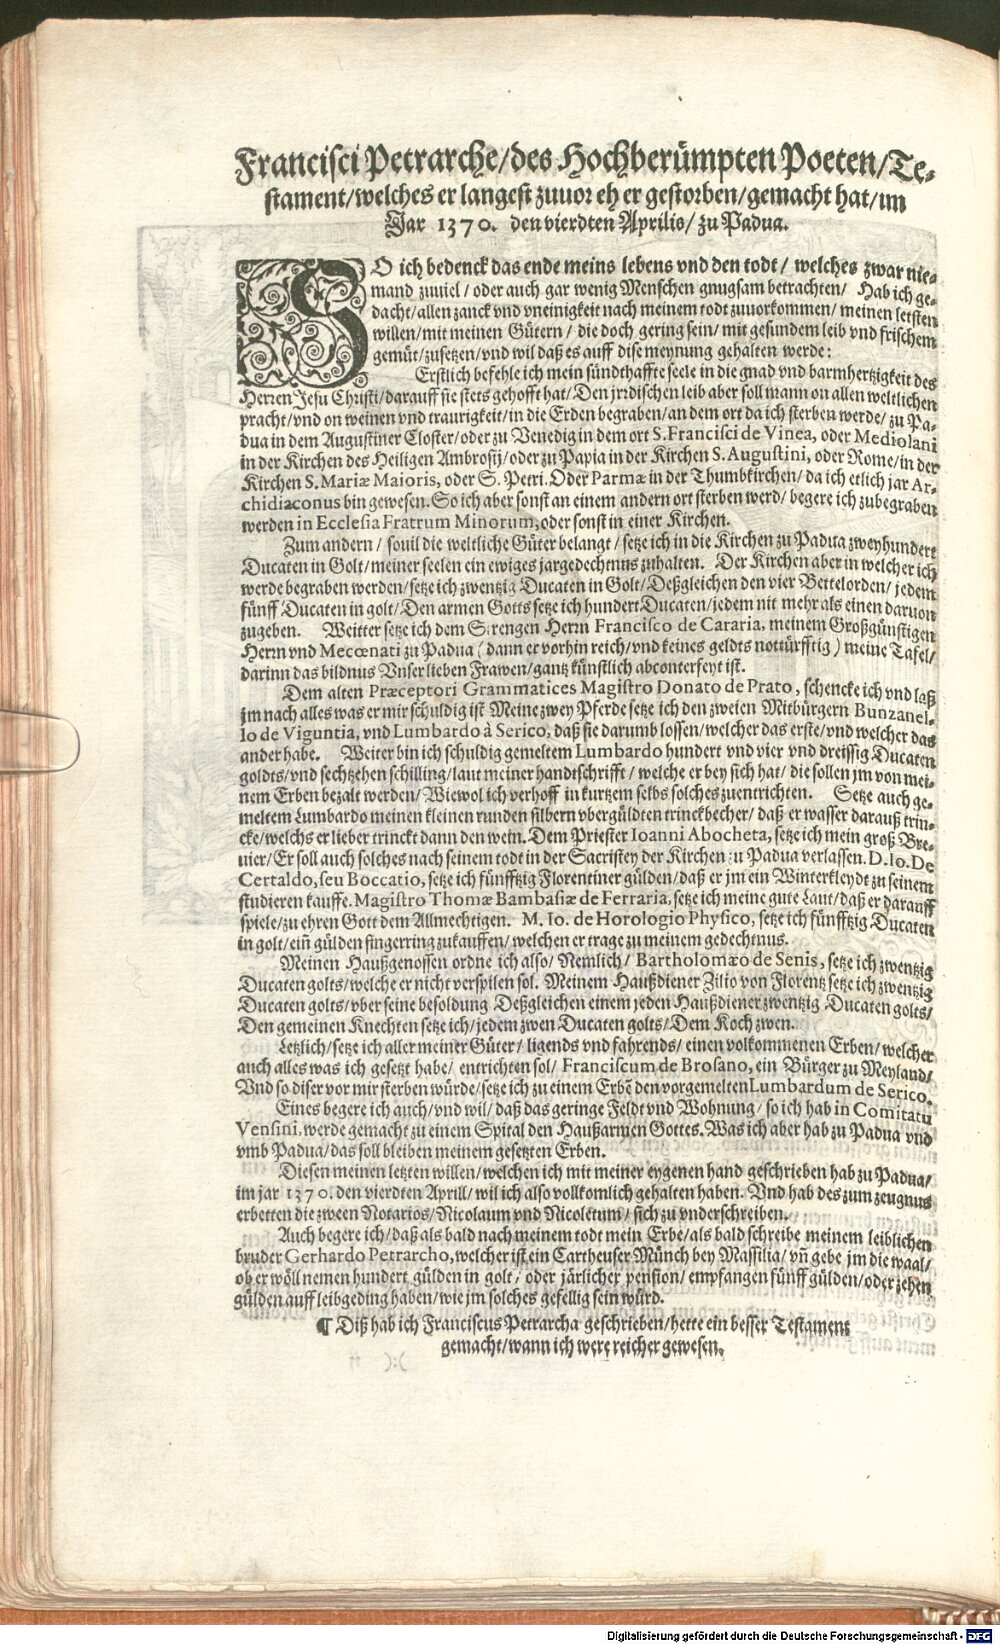 Francisci Petrarche/des Hochberümpten Poeten/Te-
stament/welches er langest zuuor eh er gestorben/gemacht hat/im
Jar 1370. den vierdten Aprilis/ zu Padua.
SO ich bedenck das ende meins lebens vnd den todt/ welches zwar nie-
mand zuuiel/ oder auch gar wenig Menschen gnugsam betrachten/ Hab ich ge-
dacht/allen zanck vnd vneinigkeit nach meinem todt zuuorkommen/ meinen letsten
willen/mit meinen Gütern/ die doch gering sein/ mit gesundem leib vnd frischem
gemüt/zusetzen/vnd wil daß es auff dise meynung gehalten werde:
Erstlich befehle ich mein sündthaffte seele in die gnad vnd barmhertzigkeit des
Herren Jesu Christi/darauff sie stets gehofft hat/ Den jrdischen leib aber soll mann on allen weltlichen
pracht/vnd on weinen vnd traurigkeit/in die Erden begraben/an dem ort da ich sterben werde/ zu Pa-
dua in dem Augustiner Closter/oder zu Venedig in dem ort S. Francisci de Vinea, oder Mediolani
in der Kirchen des Heiligen Ambrosij/oder zu Papia in der Kirchen S. Augustini, oder Rome/in der
Kirchen S. Mariæ Maioris, oder S. Petri. Oder Parmæ in der Thumbkirchen/ da ich etlich jar Ar-
chidiaconus bin gewesen. So ich aber sonst an einem andern ort sterben werd/ begere ich zubegraben
werden in Ecclesia Fratrum Minorum, oder sonst in einer Kirchen.
Zum andern/ souil die weltliche Güter belangt/ setze ich in die Kirchen zu Padua zweyhundert
Ducaten in Golt/meiner seelen ein ewiges jargedechtnus zuhalten. Der Kirchen aber in welcher ich
werde begraben werden/setze ich zwentzig Ducaten in Golt/ Deßgleichen den vier Bettelorden/ jedem
fünff Ducaten in golt/ Den armen Gotts setze ich hundert Ducaten/jedem nit mehr als einen daruon
zugeben. Weitter setze ich dem Strengen Herrn Francisco de Cararia, meinem Großgünstigen
Herrn vnd Mecœnati zu Padua (dann er vorhin reich/vnd keines geldts nottürfftig) meine Tafel/
darinn das bildnus Vnser lieben Frawen/gantz künstlich abconterfeyt ist.
Dem alten Præceptori Grammatices Magistro Donato de Prato, schencke ich vnd laß
jm nach alles was er mir schuldig ist Meine zwey Pferde setze ich den zweien Mitbürgern Bunzanel-
lo de Viguntia, vnd Lumbardo à Serico, daß sie darumb lossen/welcher das erste/vnd welcher das
ander habe. Weiter bin ich schuldig gemeltem Lumbardo hundert vnd vier vnd dreissig Ducaten
goldts/vnd sechtzehen schilling/laut meiner handtschrifft/ welche er bey sich hat/ die sollen jm von mei-
nem Erben bezalt werden/ Wiewol ich verhoff in kurtzem selbs solches zuentrichten. Setze auch ge-
meltem Lumbardo meinen kleinen runden silbern vbergüldten trinckbecher/ daß er wasser darauß trin-
cke/welchs er lieber trinckt dann den wein. Dem Priester Ioanni Abocheta, setze ich mein groß Bre-
uier/Er soll auch solches nach seinem todt in der Sacristey der Kirchen zu Padua verlassen. D. Io. De
Certaldo, seu Boccatio, setze ich fünfftzig Florentiner gülden/daß er jm ein Winterkleydt zu seinem
studieren kauffe. Magistro Thomæ Bambasiæ de Ferraria, setze ich meine gute Laut/daß er darauff
spiele/zu ehren Gott dem Allmechtigen. M. Io. de Horologio Physico, setze ich fünfftzig Ducaten
in golt/ein gülden fingerring zukauffen/ welchen er trage zu meinem gedechtnus.
Meinen Haußgenossen ordne ich also/ Nemlich/ Bartholomæo de Senis, setze ich zwentzig
Ducaten golts/welche er nicht verspilen sol. Meinem Haußdiener Zilio von Florentz setze ich zwentzig
Ducaten golts/vber seine besoldung Deßgleichen einem jeden Haußdiener zwentzig Ducaten golts/
Den gemeinen Knechten setze ich/jedem zwen Ducaten golts/ Dem Koch zwen.
Letzlich/setze ich aller meiner Güter/ ligends vnd fahrends/ einen volkommenen Erben/ welcher
auch alles was ich gesetzt habe/ entrichten sol/ Franciscum de Brosano, ein Bürger zu Meyland/
Vnd so diser vor mir sterben würde/setze ich zu einem Erbē den vorgemelten Lumbardum de Serico.
Eines begere ich auch/vnd wil/ daß das geringe Feldt vnd Wohnung/ so ich hab in Comitatu
Vensini, werde gemacht zu einem Spital den Haußarmen Gottes. Was ich aber hab zu Padua vnd
vmb Padua/das soll bleiben meinem gesetzten Erben.
Diesen meinen letzten willen/welchen ich mit meiner eygenen hand geschrieben hab zu Padua/
im jar 1370. den vierdten Aprill/ wil ich also vollkomlich gehalten haben. Vnd hab des zum zeugnus
erbetten die zween Notarios/Nicolaum vnd Nicoletum/ sich zu vnderschreiben.
Auch begere ich/ daß als bald nach meinem todt mein Erbe/als bald schreibe meinem leiblichen
bruder Gerhardo Petrarcho, welcher ist ein Cartheuser Münch bey Massilia/ vn̄ gebe jm die waal/
ob er wöll nemen hundert gülden in golt/ oder järlicher pension/ empfangen fünff gülden/oder zehen
gülden auff leibgeding haben/wie jm solches gefellig sein würd.
¶ Diß hab ich Franciscus Petrarcha geschrieben/hette ein besser Testament
gemacht/wann ich were reicher gewesen.
Digitalisierung gefördert durch die Deutsche Forschungsgemeinschaft - DFG